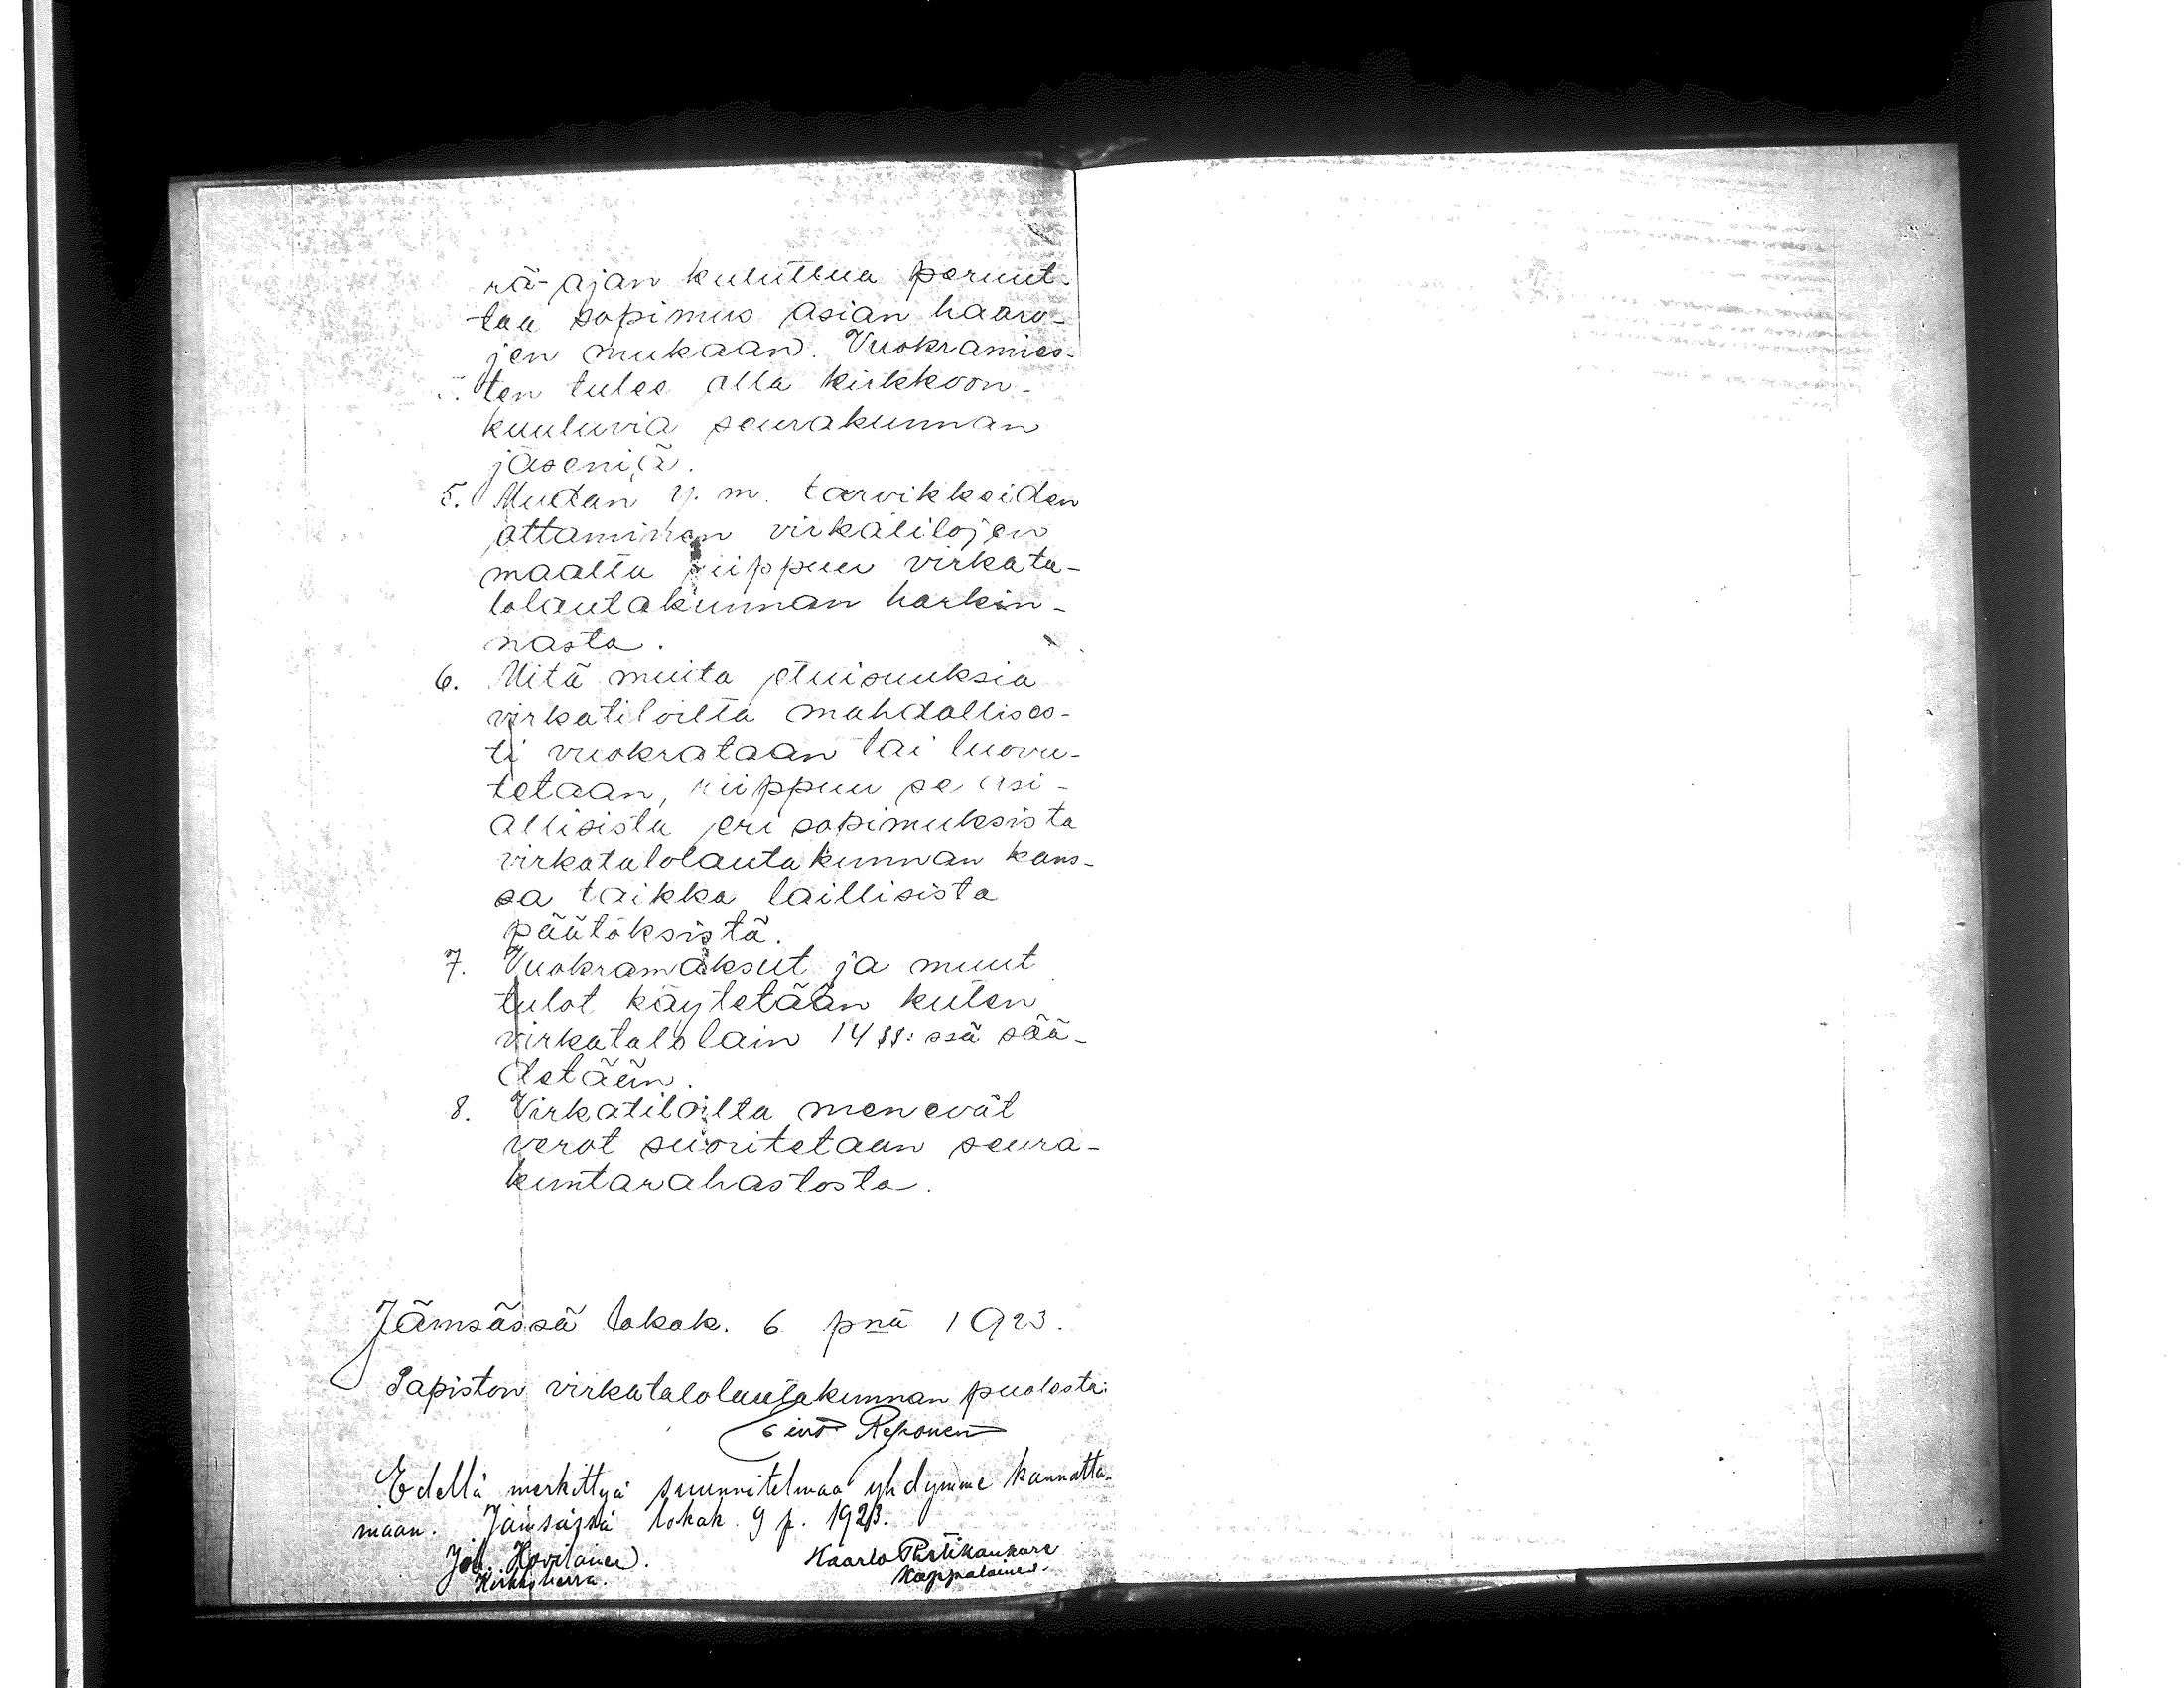 rä-ajan kuluttua peruut-
taa sopimus asian haaro-
jen mukaan. Vuokramies-
ten tulee olla kirkkoon-
kuuluvia seurakunnan
jäseniä.
5. Mudan y. m. tarvikkeiden
ottaminen virkatilojen
maalta riippuu virkata-
lolautakunnan harkin-
nasta.
6. Mitä muita etuisuuksia
virkatiloilta mahdollises-
ti vuokrataan tai luovu-
tetaan, riippuu se asi-
allisista eri sopimuksista
virkatalolautakunnan kans-
sa taikka laillisista
päätöksistä.
7. Vuokramaksut ja muut
tulot käytetään kuten
virkatalolain 14 §§:ssä sää-
detään.
8. Virkatiloilta menevät
verot suoritetaan seura-
kuntarahastosta.
Jämsässä lokak. 6 pnä 1923.
Papiston virkatalolautakunnan puolesta:
Eino Reponen
Edellä merkittyä suunnitelmaa yhdymme kannatta-
maan. Jämsässä lokak. 9 p. 1923.
Joh. Hovilainen. Kaarlo
Kirkkoherra. Kappalainen.